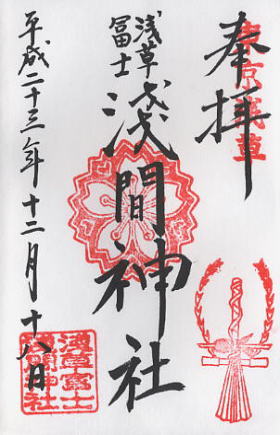 奉拝
東京浅草
浅草
冨士
浅間神社
平成二十三年十二月十八日
浅草富士
浅間神社